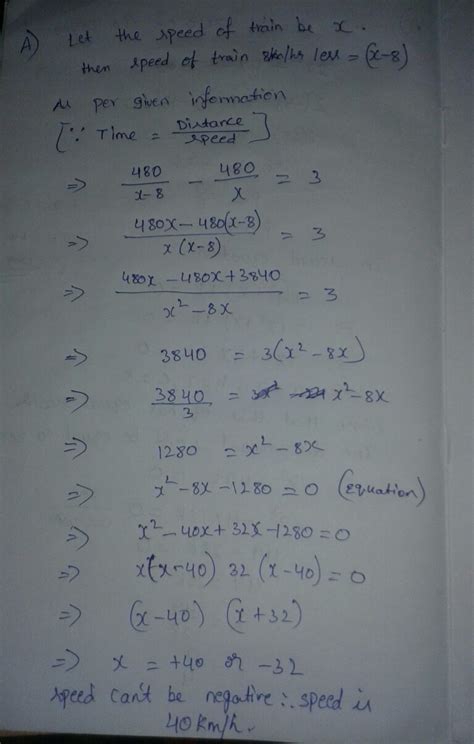 A) Let the speed of train be x.
then speed of train 8km/hr less = (x-8)
As per given information
[∵ Time = Distance/speed]
=> 480/x-8 - 480/x = 3
=> 480x - 480(x-8)/x(x-8) = 3
=> 480x - 480x + 3840/x² - 8x = 3
=> 3840 = 3(x² - 8x)
=> 3840/3 = x² - 8x
=> 1280 = x² - 8x
=> x² - 8x - 1280 = 0 (Equation)
=> x² - 40x + 32x - 1280 = 0
=> x(x-40) 32 (x-40) = 0
=> (x-40) (x+32)
=> x = +40 or -32
speed can't be negative ∴ speed is
40 km/h.